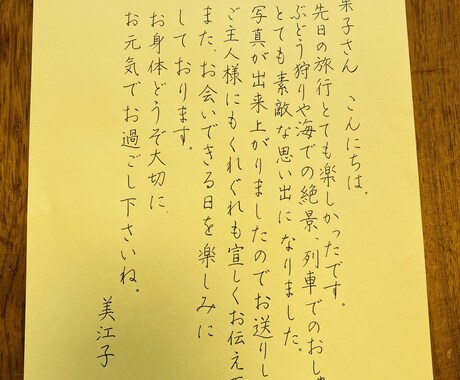 子さん こんにちは。
先日の旅行とても楽しかったです。
ぶどう狩りや海での絶景、列車でのおし
とても素敵な思い出になりました。
写真が出来上がりましたのでお送りし
ご主人様にもくれぐれも宜しくお伝え
また、お会いできる日を楽しみに
しております。
お身体どうぞ大切に
お元気でお過ごし下さいね。
美江子